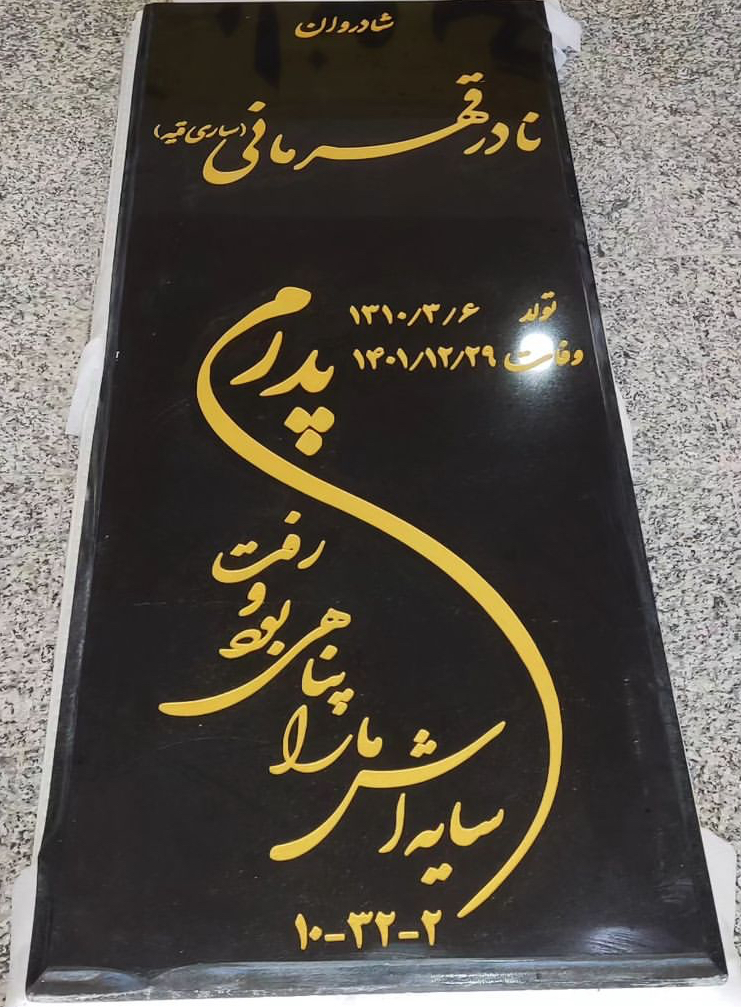 شادروان
نادر قهرمانی (ساری قیه)
تولد ۱۳۱۰/۳/۶
وفات ۱۴۰۱/۱۲/۲۹
پدرم
سایه اش
ما را
پناهی
بود و
رفت
۱۰-۳۲-۲